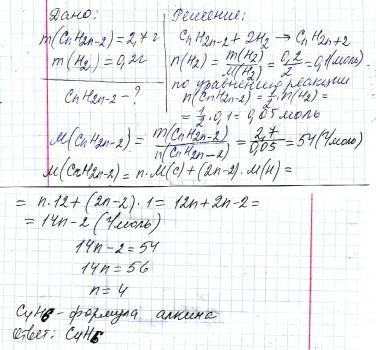 Дано:
m(CnH2n-2)=2,7г
m(H2)=0,2г
CnH2n-2 - ?
Решение:
CnH2n-2 + 2H2 → CnH2n+2
n(H2) = m(H2)/M(H2) = 0,2/2 = 0,1(моль)
по уравнению реакции
n(CnH2n-2) = 1/2 · n(H2) =
= 1/2 · 0,1 = 0,05 моль
M(CnH2n-2) = m(CnH2n-2)/n(CnH2n-2) = 2,7/0,05 = 54(г/моль)
M(CnH2n-2) = n·M(C)+(2n-2)·M(H) =
= n·12+(2n-2)·1 = 12n+2n-2 =
= 14n-2 (г/моль)
14n-2 = 54
14n = 56
n = 4
C4H6 - формула алкина
Ответ: C4H6